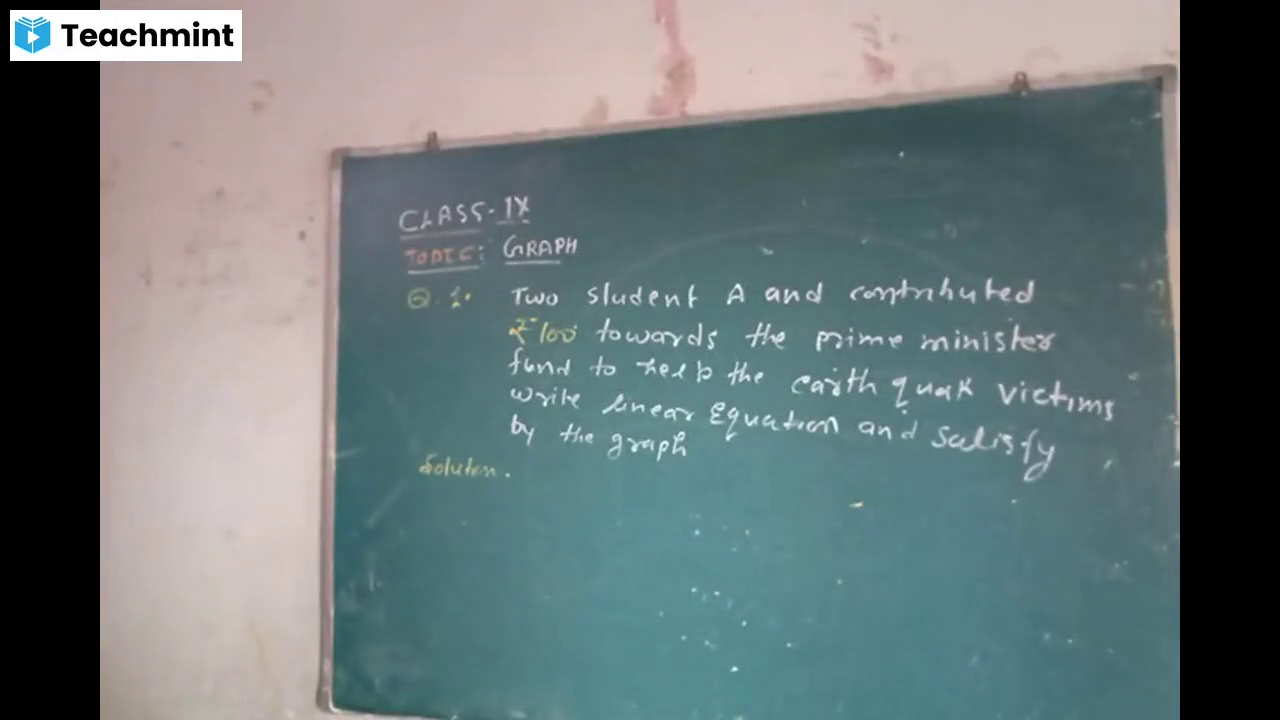 Teachmint
CLASS-IX
TOPIC: GRAPH
Q.1. Two student A and contributed
₹100 towards the prime minister
fund to help the earth quak victims
write linear Equation and satisfy
by the graph
Soluten.